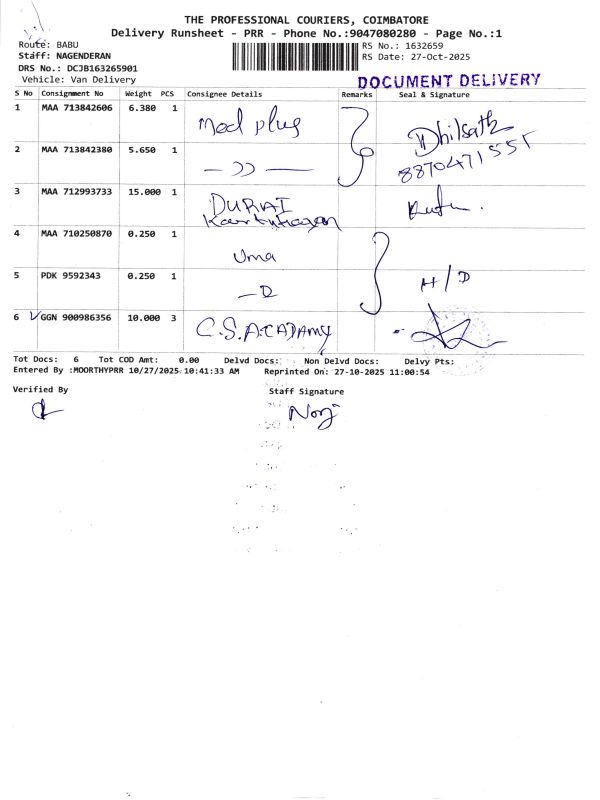 THE PROFESSIONAL COURIERS, COIMBATORE
Delivery Runsheet - PRR - Phone No.:9047080280 - Page No.:1
Route: BABU
RS No.: 1632659
Staff: NAGENDERAN
RS Date: 27-Oct-2025
DRS No.: DCJB163265901
Vehicle: Van Delivery
DOCUMENT DELIVERY
S No Consignment No Weight PCS Consignee Details Remarks Seal & Signature
1 MAA 713842606 6.380 1 Med plus Dhilsath
8870471555
2 MAA 713842380 5.650 1 — )) —
3 MAA 712993733 15.000 1 DURAI
4 MAA 710250870 0.250 1 Uma
5 PDK 9592343 0.250 1 —D H/D
6 GGN 900986356 10.000 3 C.S.ACADAMY
Tot Docs: 6 Tot COD Amt: 0.00 Delvd Docs: Non Delvd Docs: Delvy Pts:
Entered By :MOORTHYPRR 10/27/2025 10:41:33 AM Reprinted On: 27-10-2025 11:00:54
Verified By Staff Signature